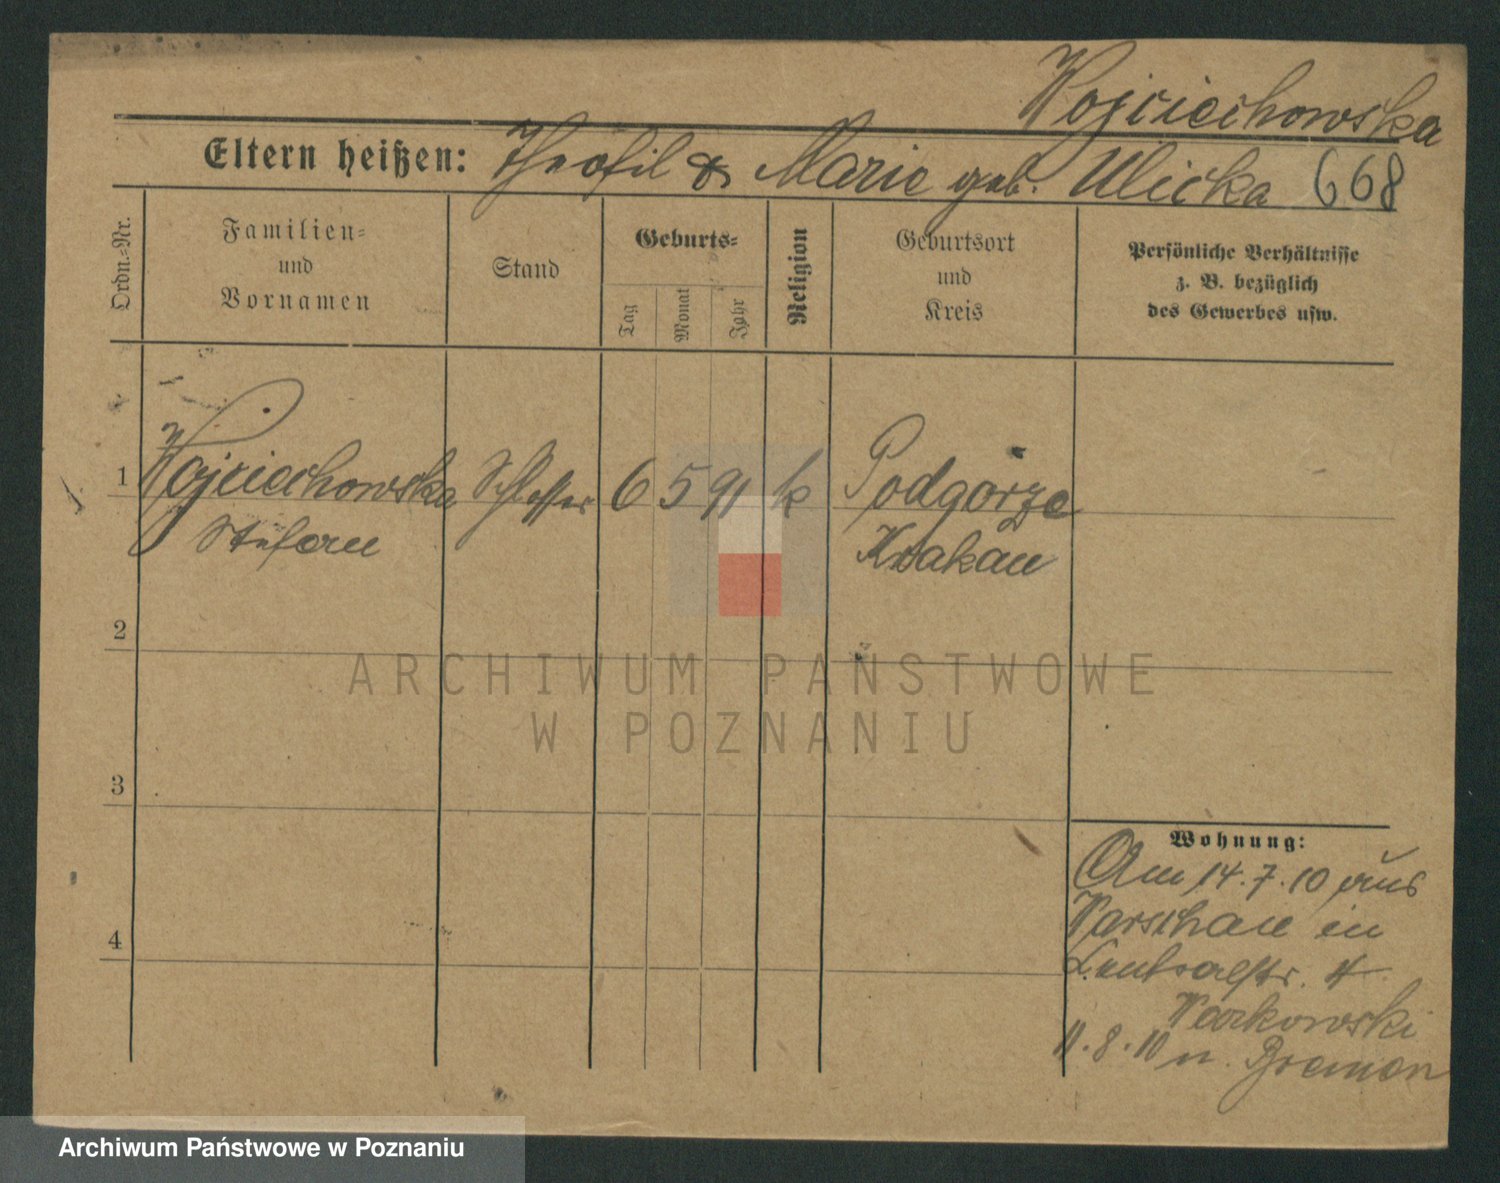 Wojciechowska
Eltern heißen: Theofil & Marie geb. Ulicka 668
Ordn.-Nr.
Familien-
und
Vornamen
Stand
Geburts-
Tag
Monat
Jahr
Religion
Geburtsort
und
Kreis
Persönliche Verhältnisse
z. B. bezüglich
des Gewerbes usw.
1 Wojciechowska Schlosser 6 5 91 k Podgorze
Stefan Krakau
2
3
4
Wohnung:
Am 14.7.10 aus
Warschau in
Zentralstr. 4
11.8.10 n. Bremen
ARCHIWUM PAŃSTWOWE
W POZNANIU
Archiwum Państwowe w Poznaniu